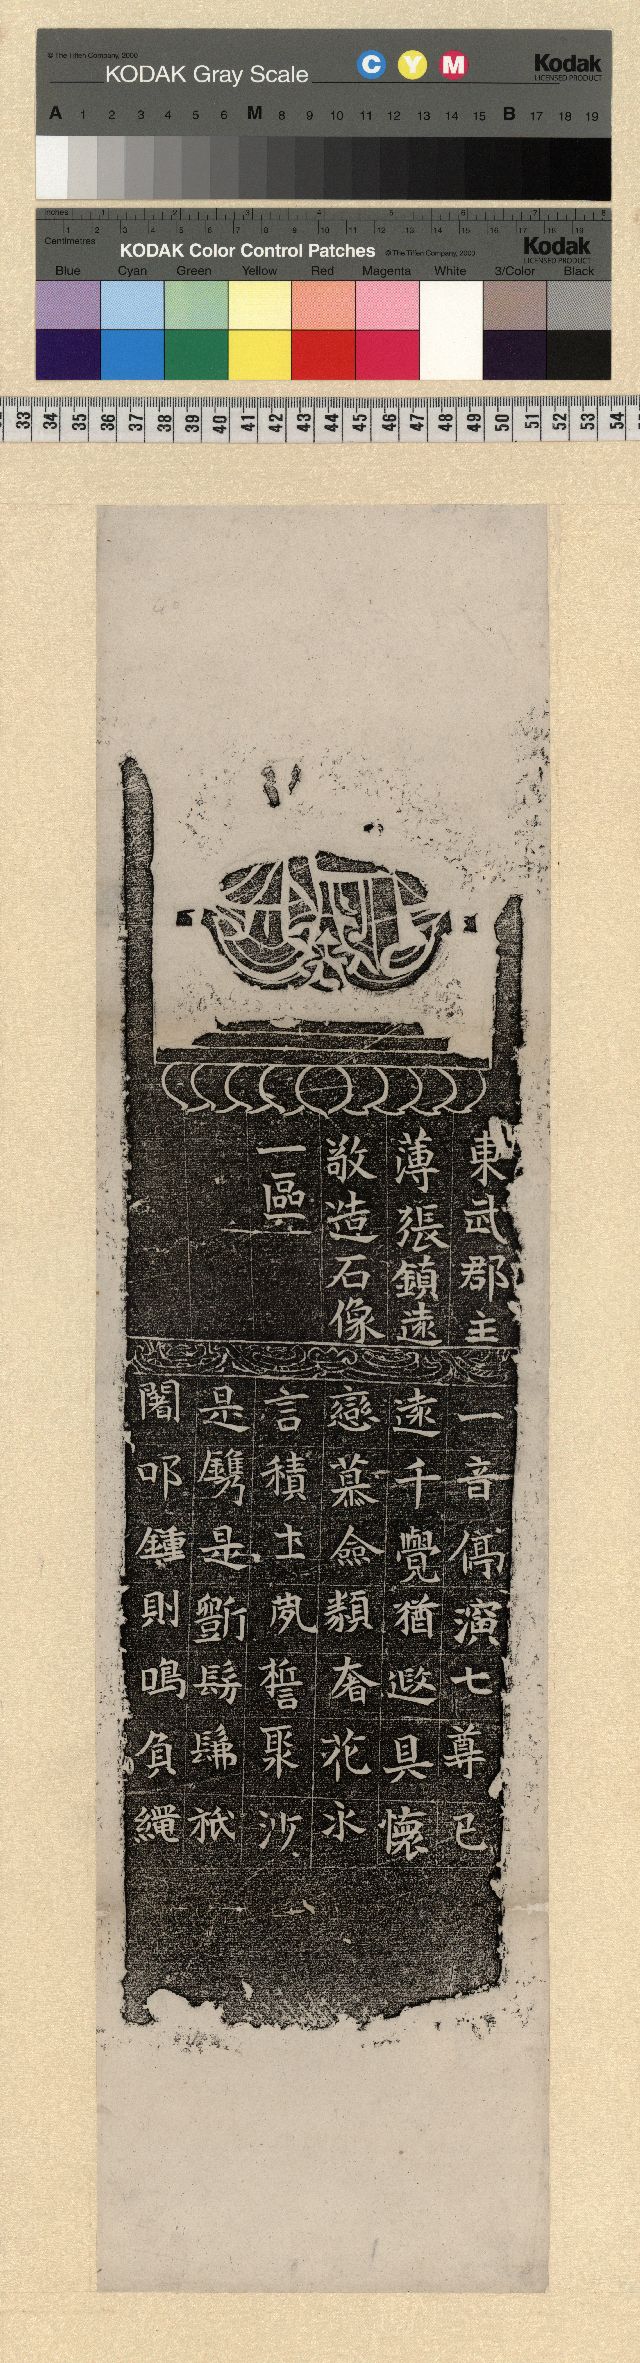 © The Tiffen Company, 2000
KODAK Gray Scale
C Y M
Kodak
LICENSED PRODUCT
A 1 2 3 4 5 6 M 8 9 10 11 12 13 14 15 B 17 18 19
Inches 1 2 3 4 5 6 7 8
Centimetres 1 2 3 4 5 6 7 8 9 10 11 12 13 14 15 16 17 18 19
KODAK Color Control Patches
© The Tiffen Company, 2000
Kodak
LICENSED PRODUCT
Blue Cyan Green Yellow Red Magenta White 3/Color Black
33 34 35 36 37 38 39 40 41 42 43 44 45 46 47 48 49 50 51 52 53 54
東武郡主
薄張鎮遠
敬造石像
一區
一音停演七尊已
遠千覺猶遐具懷
戀慕僉顏奢花永
言積土夙誓聚沙
是鐫是斵髣髴祇
闍叩鍾則鳴負繩